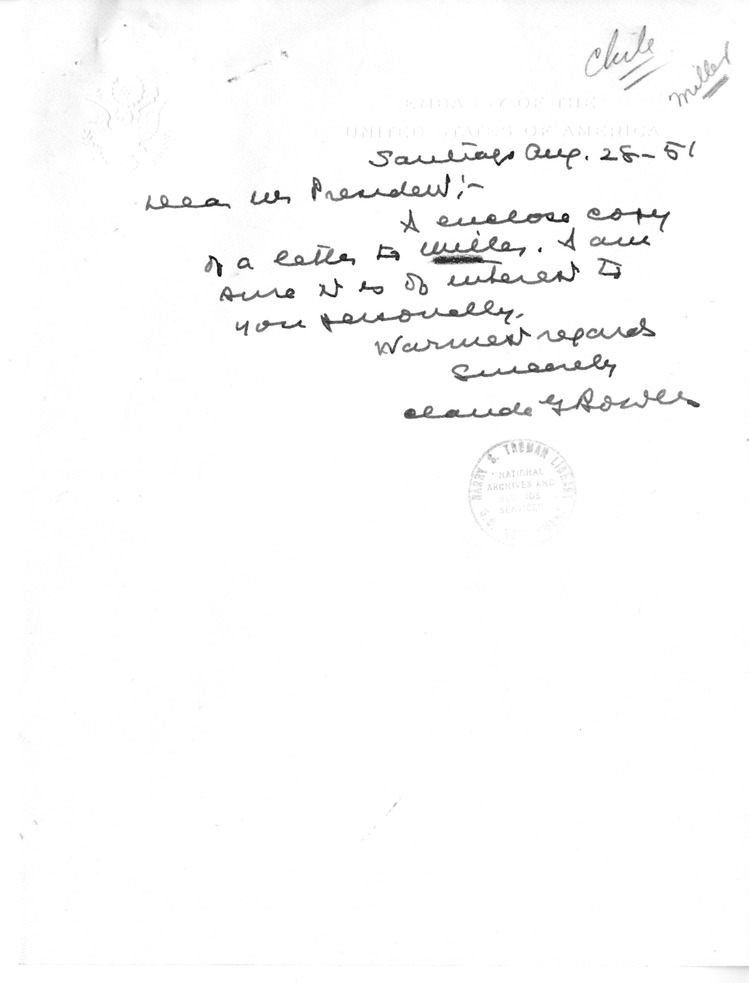 Chile
Miller
EMBASSY OF THE
UNITED STATES OF AMERICA
Santiago Aug. 28-51
Dear Mr President;-
I enclose copy
of a letter to Miller. I am
sure it is of interest to
you personally.
Warmest regards
Sincerely
Claude G Bowers
HARRY S. TRUMAN LIBRARY
NATIONAL
ARCHIVES AND
SERVICE